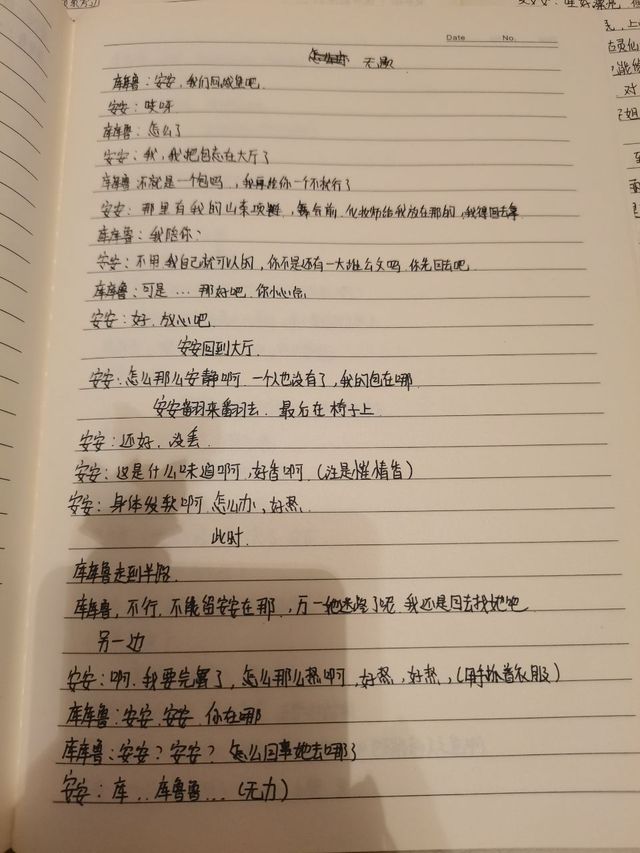 Date No.
无
库库鲁：安安，我们回城堡吧
安安：哎呀
库库鲁：怎么了
安安：我，我把包忘在大厅了
库库鲁 不就是一个包吗，我再给你一个不就行了
安安：那里有我的山茶项链，舞会前，化妆师给我放在那的，我得回去拿
库库鲁：我陪你？
安安：不用，我自己就可以的，你不是还有一大堆公文吗 你先回去吧
库库鲁：可是… 那好吧，你小心点
安安：好，放心吧
安安回到大厅.
安安：怎么那么安静啊 一个人也没有了，我的包在哪
安安翻来翻去. 最后在椅子上
安安：还好，没丢
安安：这是什么味道啊，好香啊（注是催情香）
安安：身体发软啊 怎么办，好热
此时.
库库鲁走到半路
库库鲁，不行，不能留安安在那，万一她迷路了呢 我还是回去找她吧
另一边
安安：啊，我要完蛋了，怎么那么热啊，好热，好热，（用手抓着衣服）
库库鲁：安安，安安，你在哪
库库鲁：安安？安安？ 怎么回事她去哪了
安安：库..库鲁鲁…（无力）